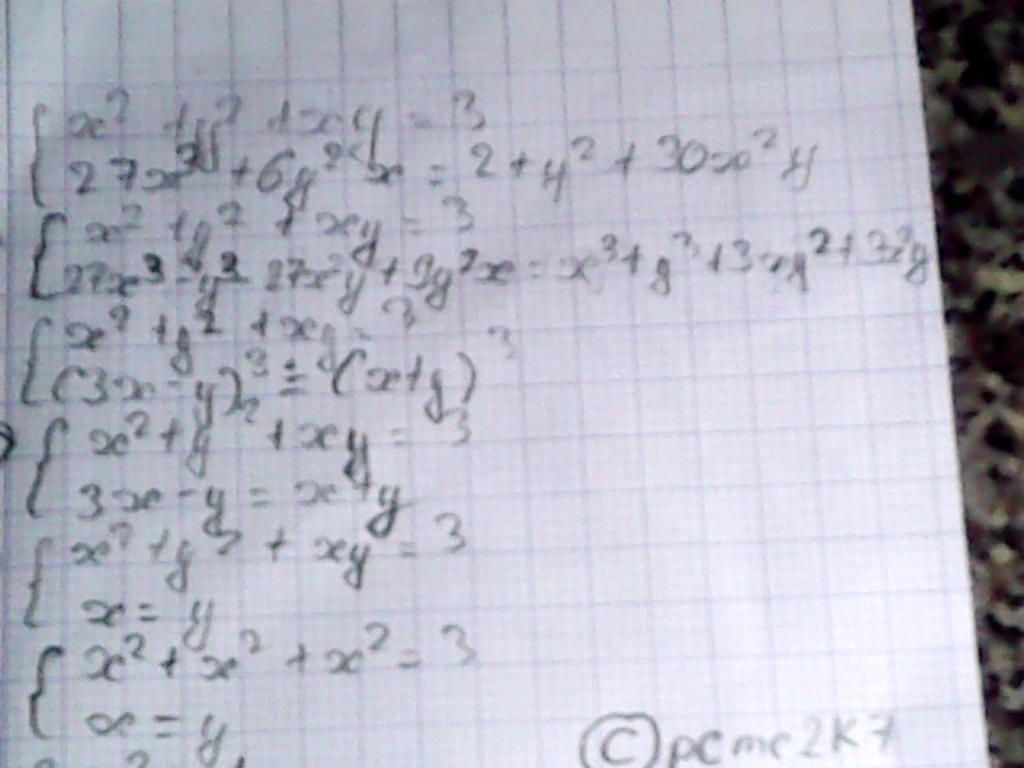 x² + y² + xy = 3
27x³ + 6y²x = 2 + y² + 30x²y
x² + y² + xy = 3
27x³ - y³ - 27x²y + 9y²x = x³ + y³ + 3xy² + 3x²y
x² + y² + xy = 3
(3x - y)³ = (x + y)³
x² + y² + xy = 3
3x - y = x + y
x² + y² + xy = 3
x = y
x² + x² + x² = 3
x = y
© pcmc2K7